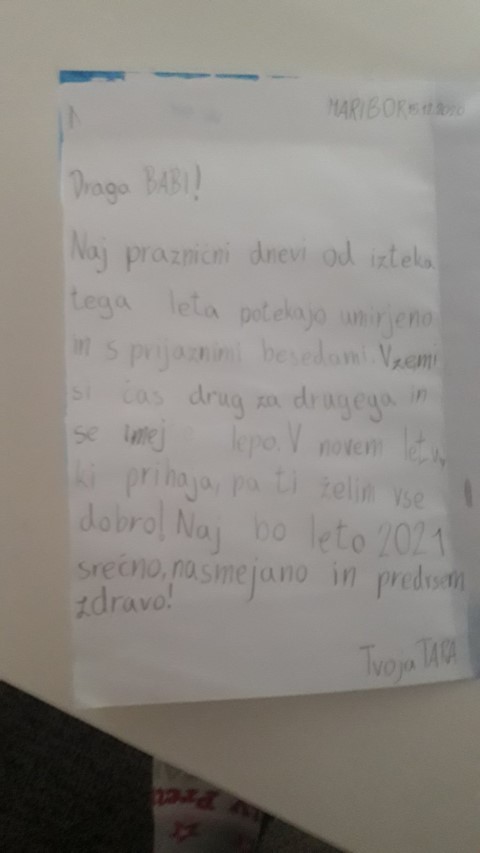 MARIBOR, 15.12.2020
Draga BABI!
Naj praznični dnevi od izteka
tega leta potekajo umirjeno
in s prijaznimi besedami. Vzemi
si čas drug za drugega in
se imej lepo. V novem letu,
ki prihaja, pa ti želim vse
dobro! Naj bo leto 2021
srečno, nasmejano in predvsem
zdravo!
Tvoja TARA